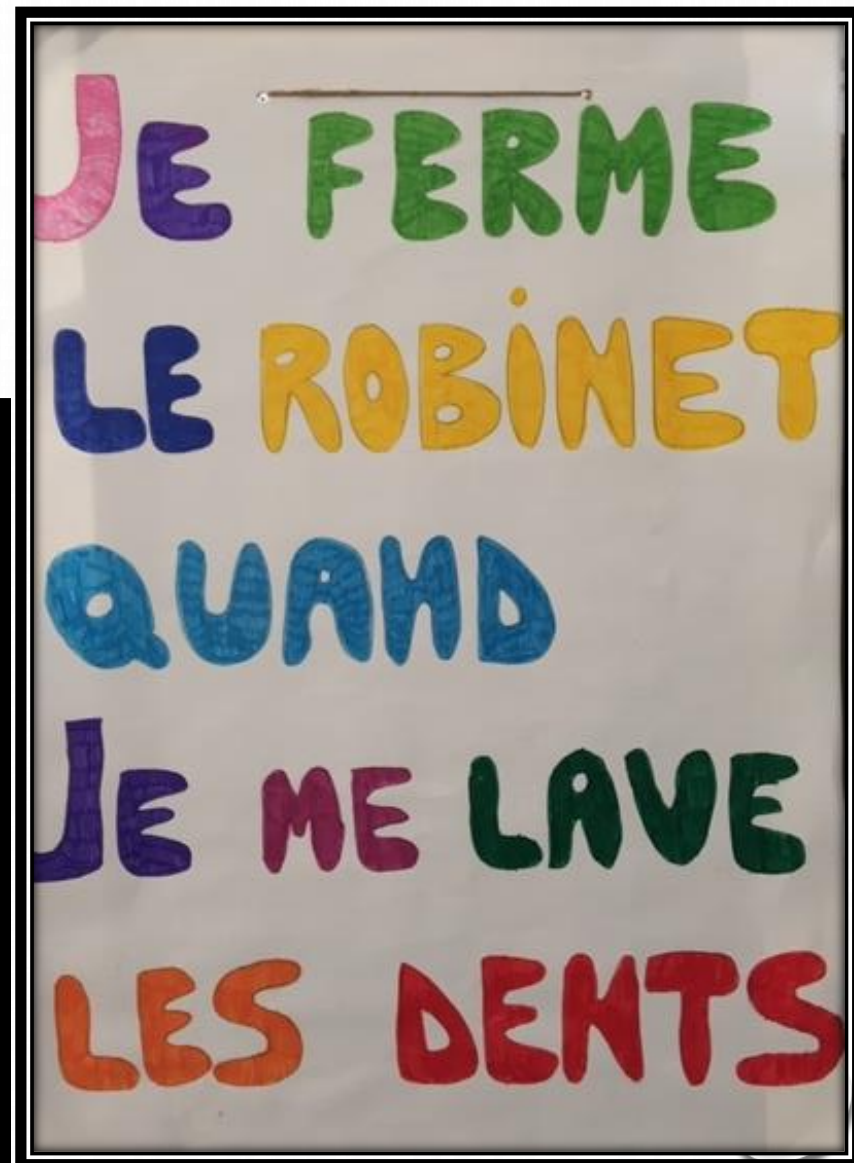 JE FERME
LE ROBiNET
QUAND
JE ME LAVE
LES DENTS